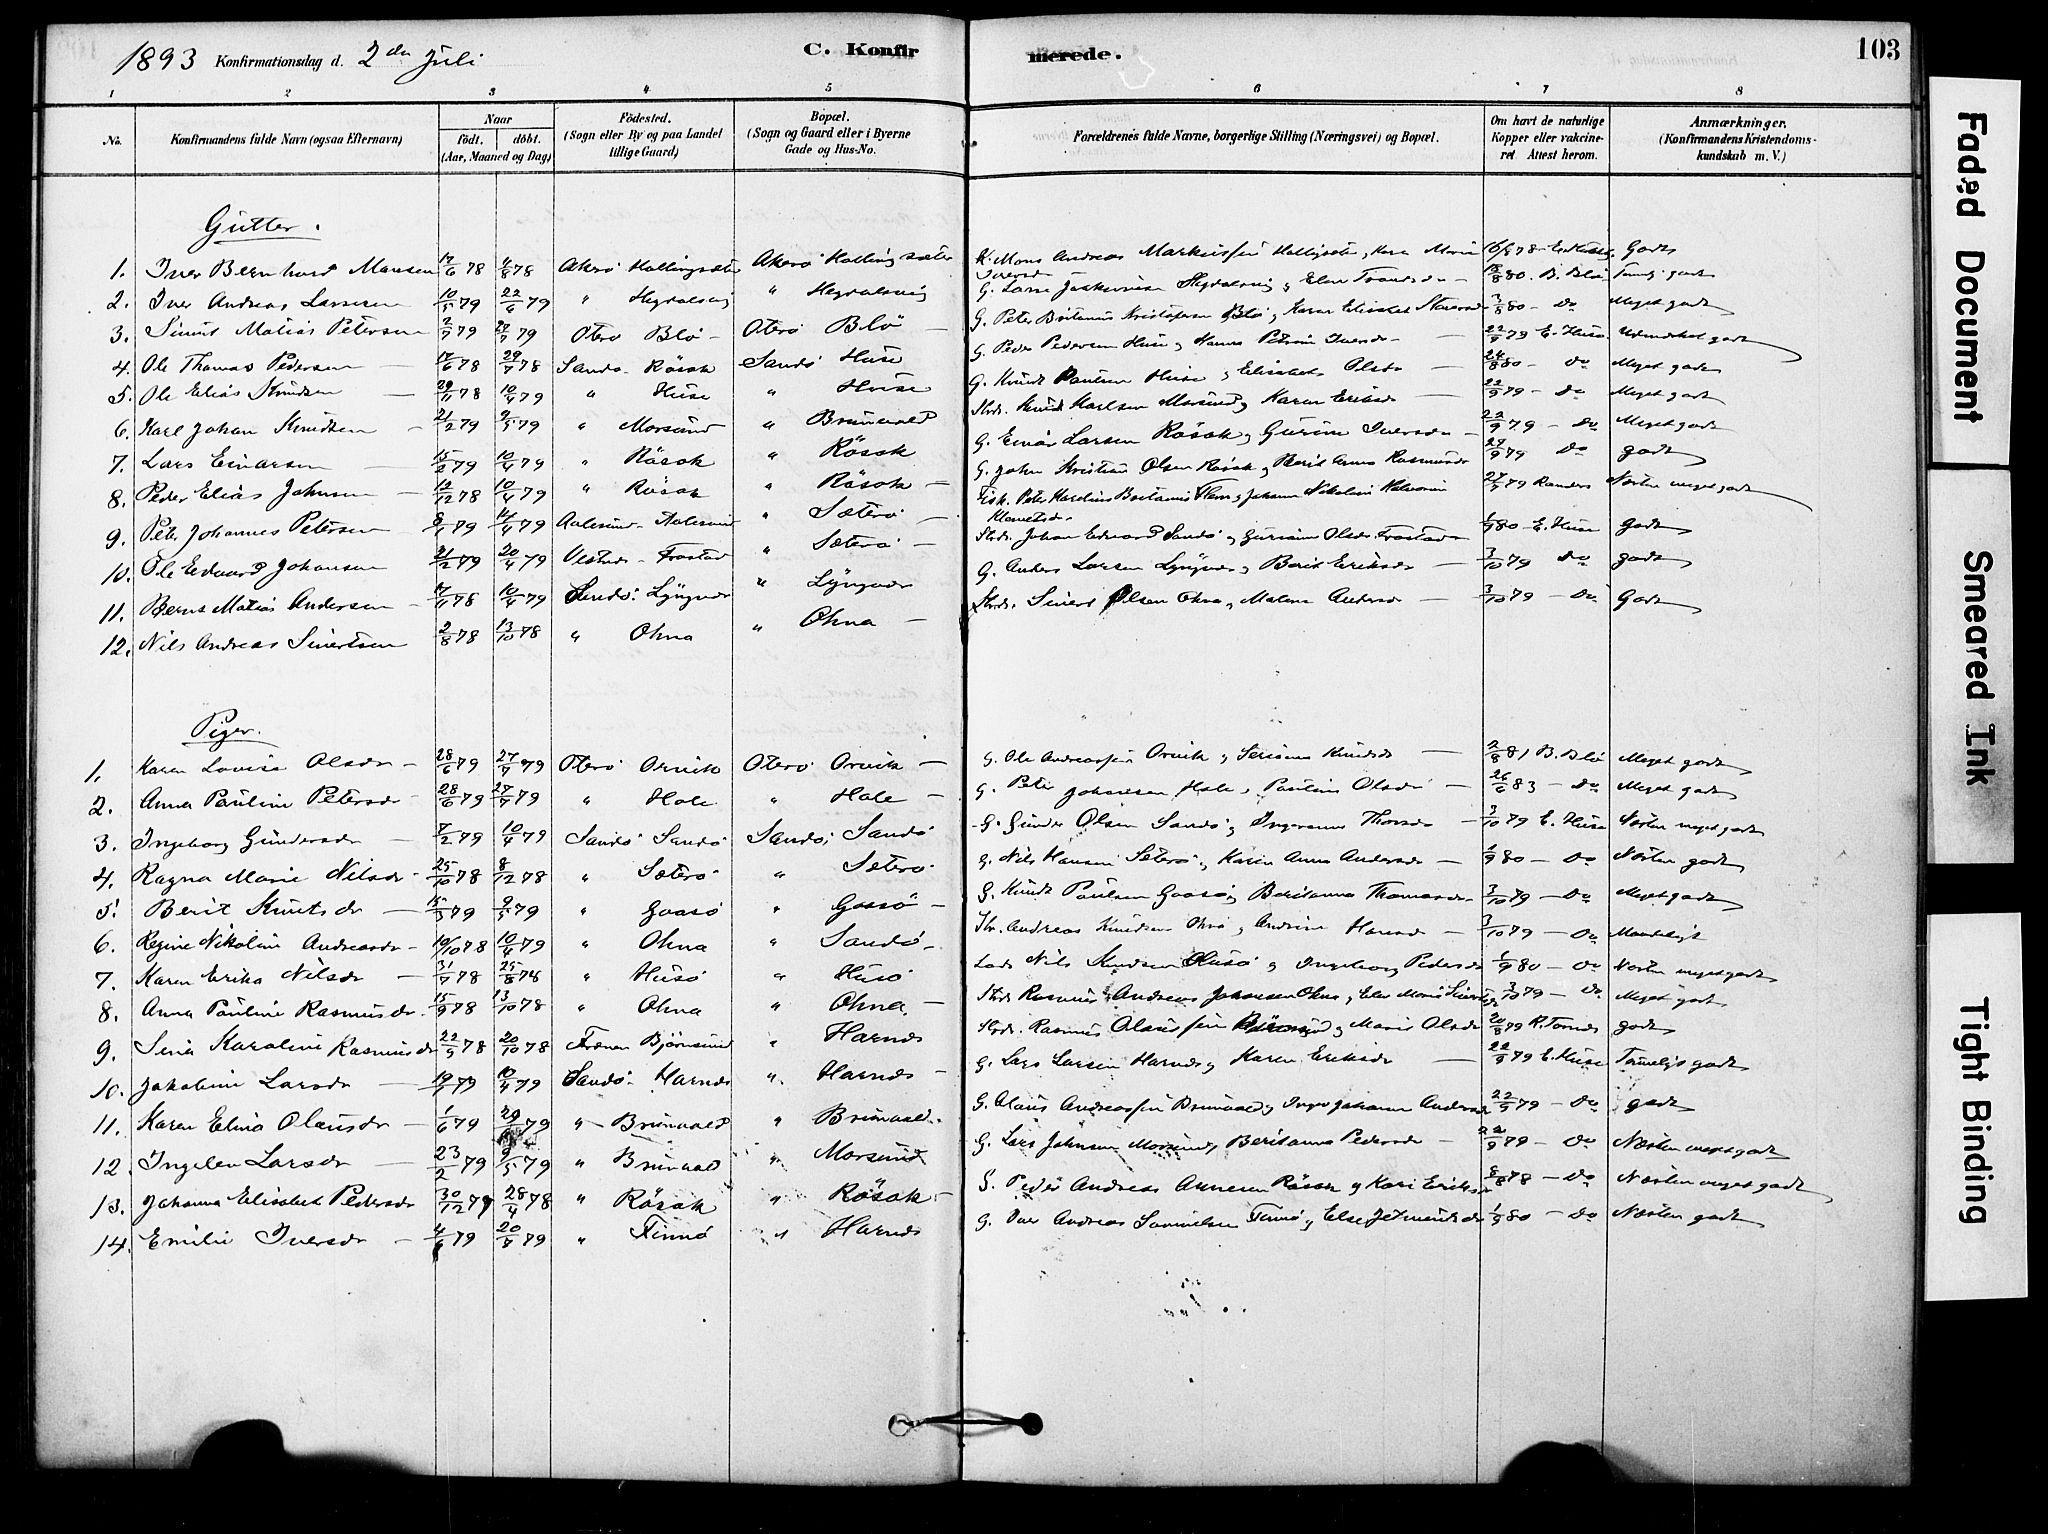 1893 Konfirmationsdag d. 2den Juli C. Konfir merede. 103
1 2 3 4 5 6 7 8
No. Konfirmandens fulde Navn (ogsaa Efternavn) Naar födt. döbt. (Aar, Maaned og Dag) Födested. (Sogn eller By og paa Landet tillige Gaard) Bopæl. (Sogn og Gaard eller i Byerne Gade og Hus-No. Forældrenes fulde Navne, borgerlige Stilling (Næringsvei) og Bopæl. Om havt de naturlige Kopper eller vakcineret Attest herom. Anmærkninger, (Konfirmandens Kristendomskundskab m. V.)
Gutter.
1. Iver Bernhard Monsen 17/6 78 4/8 78 Akerö Hollingsæter Akerö Hollingsæter Mons Andreas Markussen Godt
2. Iver Andreas Larsen 10/5 79 22/6 79 " Hegdalsvig " Hegdalsvig G. Larse 80. B. Blö
3. Sivert Matias Petersen 2/7 79 27/7 79 Oterö Blö - Oterö Blö - G. Peter Kristofersen Blö, Karen Elisabet 3/8 80 - Do Meget godt
4. Ole Thomas Pedersen 17/6 78 29/7 78 Sandö Rösok Sandö Huse G. Peder Pedersen Huse, Hanna 22/9 79 E. Huse godt
5. Ole Elias Knudsen 29/11 78 10/4 79 " Huse " Huse G. Knudt Paulsen Huse, Elisabet Olsdr 24/8 80 - Do Meget godt
6. Karl Johan Knudsen 21/2 79 2/5 79 " Morsund " Brunvold Karlsen Morsund, Karen Eriksdr 22/9 79 - Do Meget godt
7. Lars Einarsen 15/2 79 10/4 79 " Rösok " Rösok G. Einar Larsen Rösok, Gurine Iversdr 22/9 79 - Do Meget godt
8. Peder Elias Johnsen 12/12 78 10/4 79 " Rösok " Rösok - G. John Kristian Olsen Rösok, Berit Anna Rasmusdr 27/9 79 Do godt
9. Peter Johannes Petersen 8/1 79 14/4 79 Aalesund - Aalesund " Sæterö - Fisk. Peter Karolius Johanne Nikoline 27/9 79 Randers Næsten meget godt
10. Ole Edvard Johansen 21/2 79 20/4 79 - Frostad " Sæterö - Johan Edvard Sandö, Olsdr. Frostad 1/9 80 - E. Huse godt
11. Bernt Matias Andersen 17/11 78 10/4 79 Sandö: Lyngnes " Lyngnes G. Anders Larsen Lyngnes, Berit Eriksdr 3/10 79 Do godt
12. Nils Andreas Sivertsen 2/8 78 13/10 78 " Ohna " Ohna - Sivert Olsen Ohna, Malene Andersdr 3/10 79 - Do Godt
Piger.
1. Karen Lovise Olsdr - 28/6 79 27/7 79 Oterö Orvik Oterö Orvik - G. Ole Andreassen Orvik, Serianna Knudsdr 2/8 81 B. Blö Meget godt
2. Anna Pauline Petersdr 28/6 79 27/7 79 " Hole " Hole - G. Peter Johansen Hole, Pauline Olsdr - 26/6 83 - Do Meget godt
3. Ingeborg Gundersdr - 7/2 79 10/4 79 Sandö Sandö Sandö, Sandö G. Gunder Olsen Sandö, Ingeranna Thorsdr - 3/10 79 E. Huse Næsten meget godt
4. Ragna Marie Nilsdr 25/10 78 8/12 78 " Sæterö " Sæterö G. Nils Hansen Seterö, Karen Anna Andersdr - 1/9 80 - Do Næsten godt
5. Berit Knutsdr - 15/3 79 9/5 79 " Goasö " Goasö - G. Knudt Paulsen Goasö, Beritanna Thomasdr 3/10 79 - Do Meget godt
6. Regine Nikoline Andreasdr - 10/10 78 10/4 79 " Ohna " Sandö - Andreas Knudsen Ohna, Andrine Hansdr - 3/10 79 - Do Maadeligt
7. Karen Erika Nilsdr - 31/7 78 25/8 78 " Husö " Husö Nils Knudsen Husö, Ingeborg Pedersdr 1/9 80 - Do Næsten meget godt
8. Anna Pauline Rasmusdr. 15/9 78 13/10 78 " Ohna " Ohna. - Rasmus Andreas Johansen Ohna, Elen Marie 3/10 79 - Do Meget godt
9. Sina Karoline Rasmusdr 22/9 78 20/10 78 Frænen Björnsund " Harnes Rasmus Olaussen Björnsund, Marie Olsdr 20/8 79 godt
10. Jakobine Larsdr - 19/1 79 10/4 79 Sandö. Harnes " Harnes - G. Lars Larsen Harnes, Karen Eriksdr - 22/9 79 E. Huse Temmelig godt
11. Karen Elina Olausdr - 1/6 79 29/6 79 " Brunvold " Brunvold - G. Olaus Andreassen Brunvold, Johanne Andersdr 22/9 79 - Do godt
12. Ingelen Larsdr - 23/2 79 9/5 79 " Brunvold " Morsund G. Lars Johnsen Morsund, Beritanna Pedersdr - 22/9 79 - Do Næsten meget godt
13. Johanna Elisabet Pedersdr 30/12 79 28/4 78 " Rösok " Rösok - S. Peder Andreas Rösok, Kari Eriksdr 8/8 78 - Do Næsten meget godt
14. Emilie Iversdr - 4/6 79 20/7 79 " Finnö " Harnes G. Iver Andreas Samuelsen Finnö, Else 1/9 80 - Do Næsten godt
Faded Document
Smeared Ink
Tight Binding